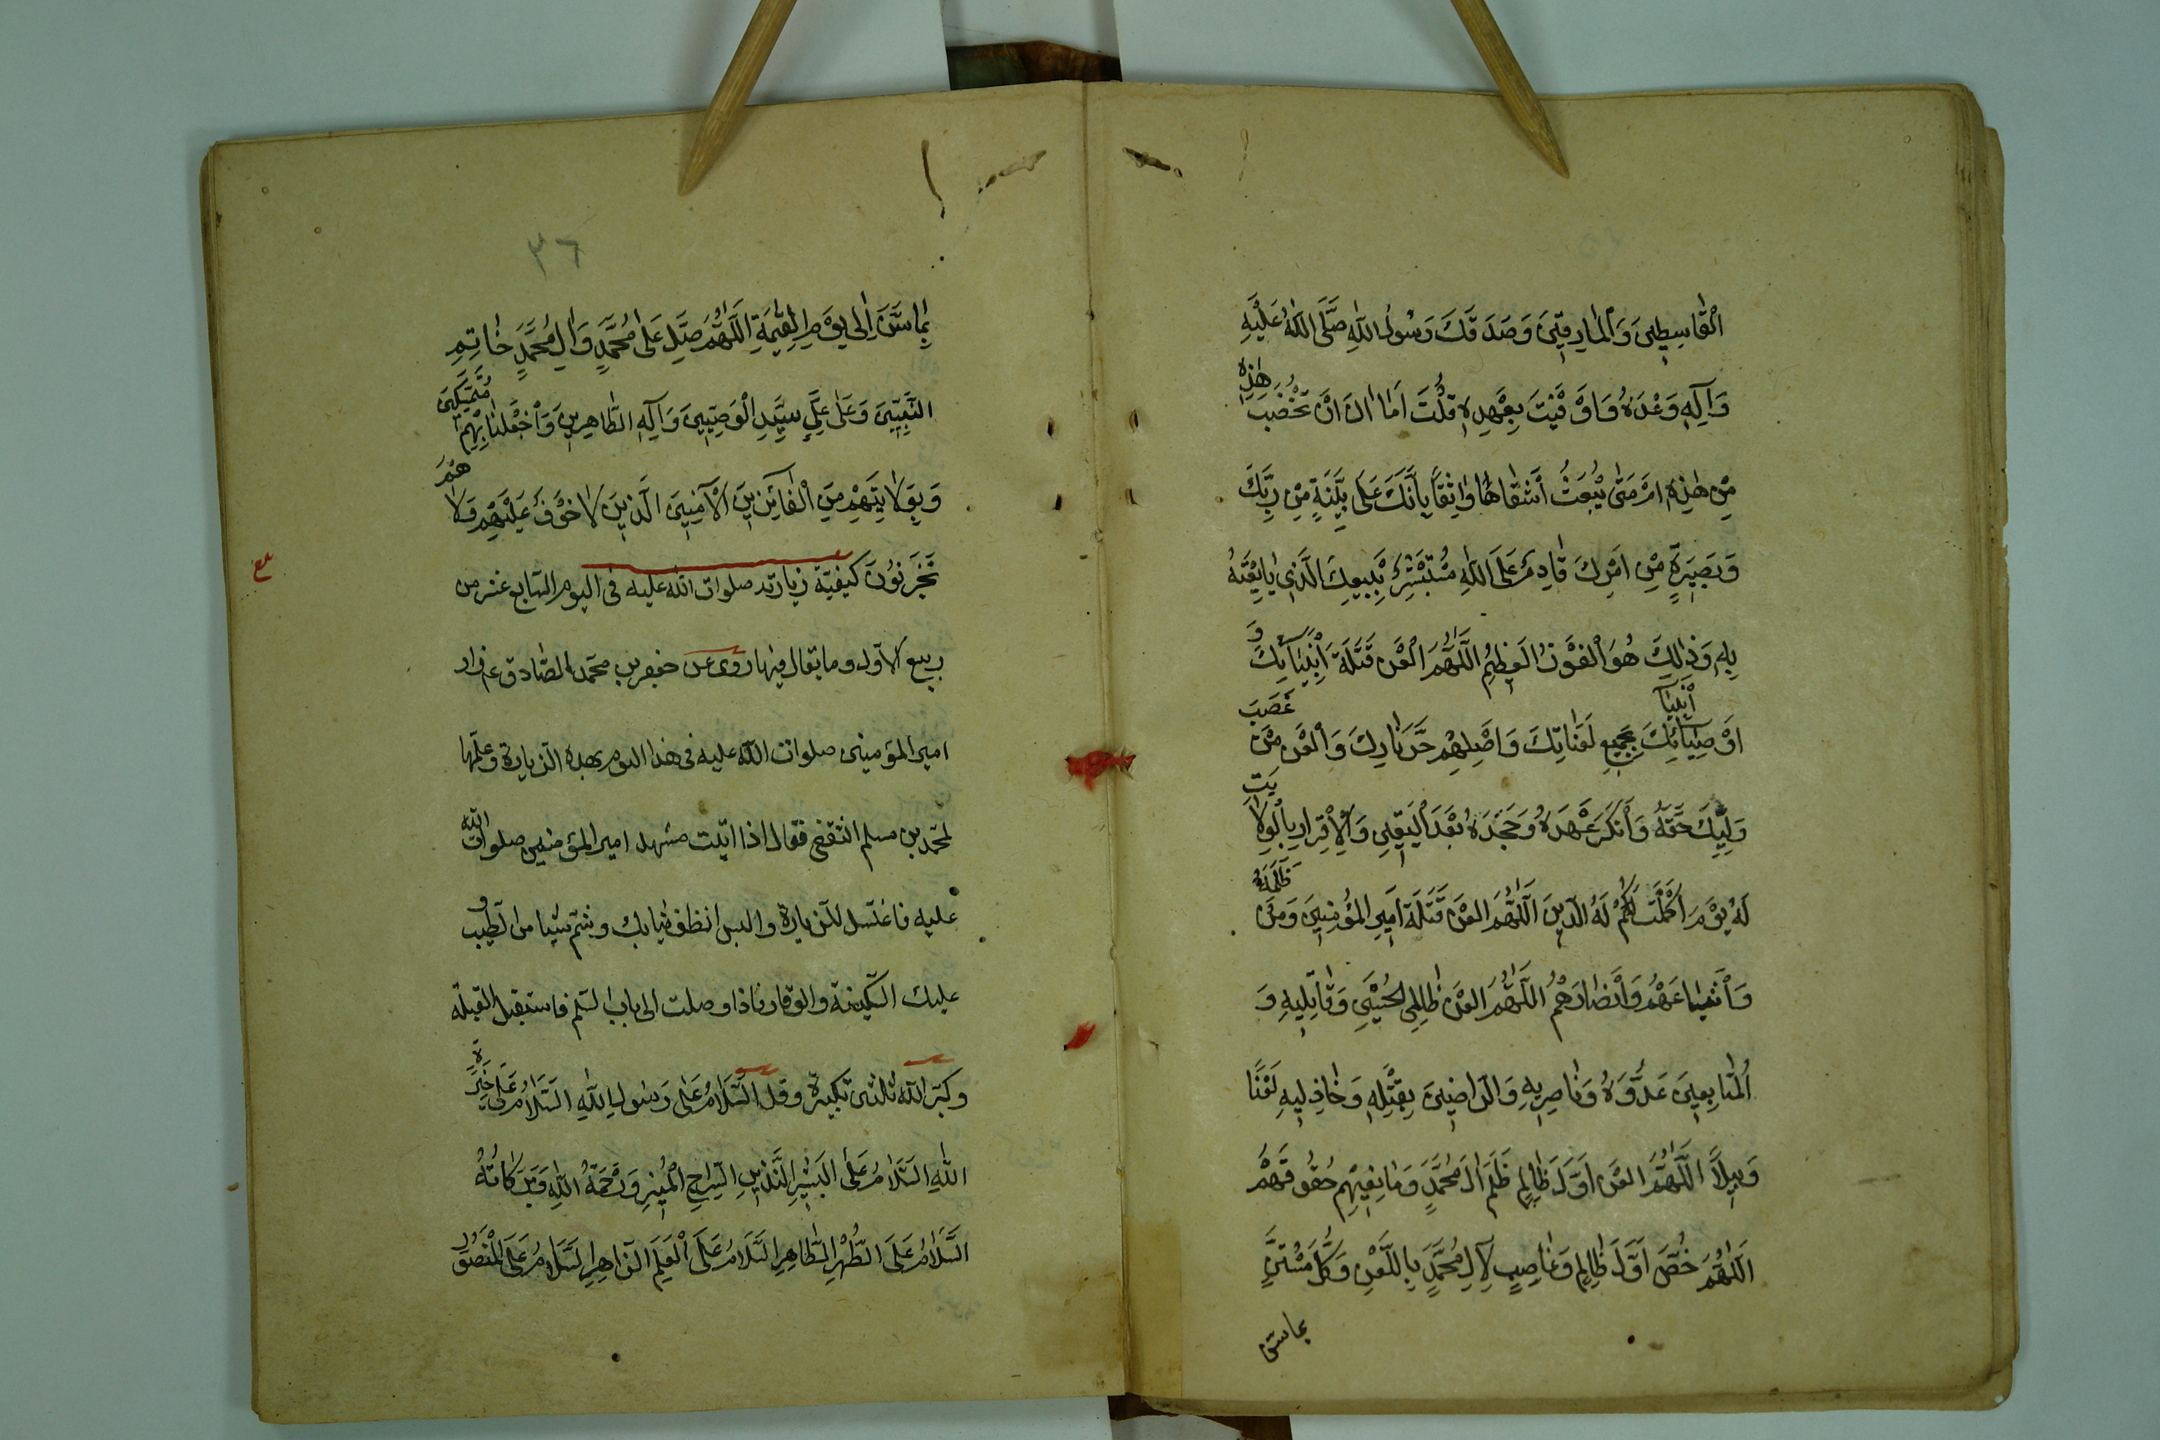 الْقَاسِطِينَ وَالْمَارِقِينَ وَصَدَقَكَ رَسُولُ اللهِ صَلَّى اللهُ عَلَيْهِ
وَآلِهِ وَعْدَهُ فَاَوْفَيْتَ بِعَهْدِهِ قُلْتَ اَمَا اٰنَ اَنْ تُخْضَبَ هٰذِهِ
مِنْ هٰذِهِ اَمْ مَتٰى يُبْعَثُ أَشْقَاهَا وَاثِقًا بِأَنَّكَ عَلَى بَيِّنَةٍ مِنْ رَبِّكَ
وَبَصِيرَةٍ مِنْ اَمْرِكَ قَادِمٌ عَلَى اللهِ مُسْتَبْشِرٌ بِبَيْعِكَ الَّذِي بَايَعْتَهُ
بِهِ وَذٰلِكَ هُوَ الْفَوْزُ الْعَظِيمُ اَللّٰهُمَّ الْعَنْ قَتَلَةَ اَنْبِيَائِكَ وَ
اَوْصِيَاءِ أَنْبِيَائِكَ بِجَمِيعِ لَعَنَاتِكَ وَاَصْلِهِمْ حَرَّ نَارِكَ وَالْعَنْ مَنْ غَصَبَ
وَلِيَّكَ حَقَّهُ وَأَنْكَرَ عَهْدَهُ وَجَحَدَهُ بَعْدَ الْيَقِينِ وَالْاِقْرَارِ بِالْوِلَايَتِ
لَهُ يَوْمَ اَكْمَلْتَ لَهُ الدِّينَ اَللّٰهُمَّ الْعَنْ قَتَلَةَ اَمِيرِ الْمُؤْمِنِينَ وَمَنْ ظَلَمَهُ
وَأَشْيَاعَهُمْ وَأَنْصَارَهُمْ اَللّٰهُمَّ الْعَنْ ظَالِمِي الْحُسَيْنِ وَقَاتِلِيهِ وَ
الْمُتَابِعِينَ عَدُوَّهُ وَنَاصِرِيهِ وَالرَّاضِينَ بِقَتْلِهِ وَخَاذِلِيهِ لَعْنًا
وَبِيلًا اَللّٰهُمَّ الْعَنْ اَوَّلَ ظَالِمٍ ظَلَمَ اٰلَ مُحَمَّدٍ وَمَانِعِيهِمْ حُقُوقَهُمْ
اَللّٰهُمَّ خُصَّ اَوَّلَ ظَالِمٍ وَغَاصِبٍ لِآلِ مُحَمَّدٍ بِاللَّعْنِ وَكُلَّ مُسْتَنٍّ
بماسن
٣٦
بِمَا سَنَّ اِلٰى يَوْمِ الْقِيٰمَةِ اَللّٰهُمَّ صَلِّ عَلٰى مُحَمَّدٍ وَاٰلِ مُحَمَّدٍ خَاتِمِ
النَّبِيِّينَ وَعَلٰى عَلِيٍّ سَيِّدِ الْوَصِيِّينَ وَآلِهِ الطَّاهِرِينَ وَاجْعَلْنَا بِهِمْ مُتَمَسِّكِينَ
وَبِوَلَايَتِهِمْ مِنَ الْفَائِزِينَ الْآمِنِينَ الَّذِينَ لَا خَوْفٌ عَلَيْهِمْ وَلَا هُمْ
يَحْزَنُونَ كيفيّة زيارته صلوات الله عليه فى اليوم السابع عشر من
ربيع الاول وما يقال فيها روى عن جعفر بن محمد الصادق ع زار
امير المؤمنين صلوات الله عليه فى هذا اليوم بهذه الزيارة وعلمها
لمحمد بن مسلم الثقفى فقال اذا اتيت مشهد امير المؤمنين صلوات الله
عليه فاغتسل للزيارة والبس انظف ثيابك وشم شيئا من الطيب و
عليك السكينة والوقار فاذا وصلت الى باب السلم فاستقبل القبلة
وكبّر الله ثلثين تكبيرة وقل السَّلَامُ عَلٰى رَسُولِ اللهِ السَّلَامُ عَلٰى خِيَرَةِ
اللهِ السَّلَامُ عَلَى الْبَشِيرِ النَّذِيرِ السِّرَاجِ الْمُنِيرِ وَرَحْمَةُ اللهِ وَبَرَكَاتُهُ
السَّلَامُ عَلَى الطُّهْرِ الطَّاهِرِ السَّلَامُ عَلَى الْعَلَمِ الزَّاهِرِ السَّلَامُ عَلَى الْمَنْصُورِ